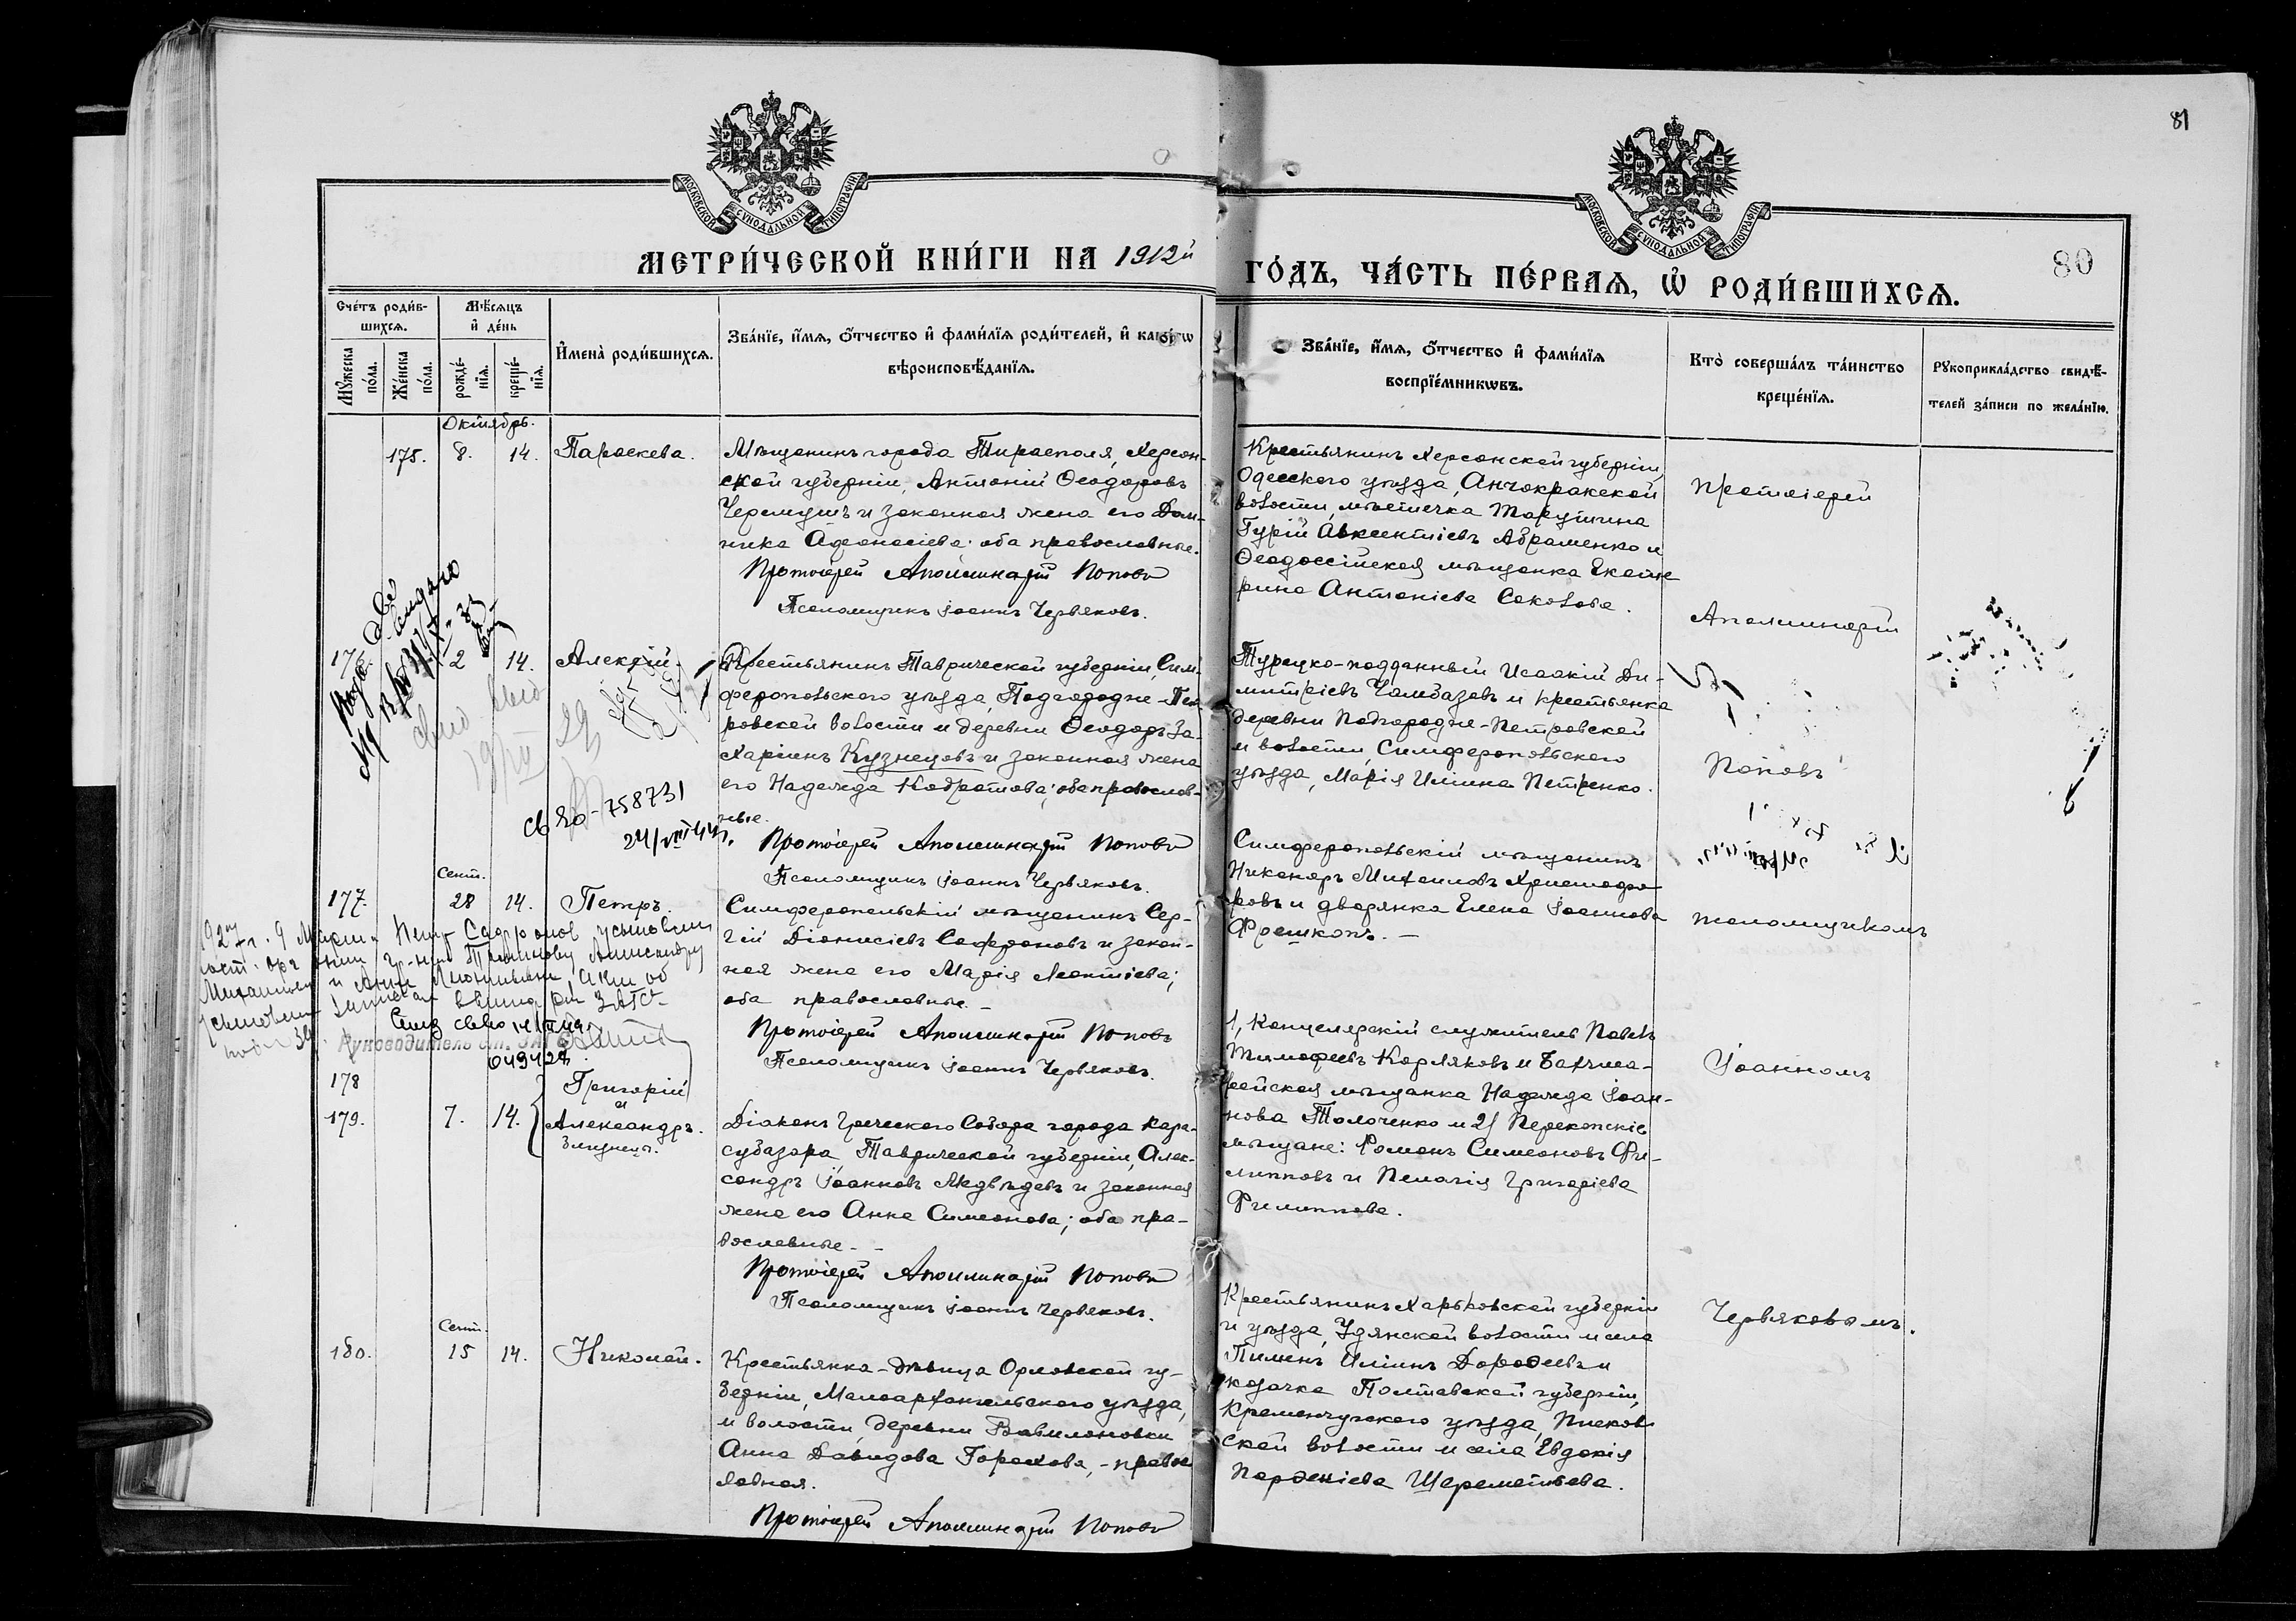 81
80
МОСКОВСКОЙ СѴНОДАЛЬНОЙ ТИПОГРАФІИ
МОСКОВСКОЙ СѴНОДАЛЬНОЙ ТИПОГРАФІИ
МЕТРИ́ЧЕСКОЙ КНИ́ГИ НА 1912й
ГО́ДЪ, ЧА́СТЬ ПЕ́РВАЯ, Ѡ҆ РОДИ́ВШИХСЯ.
Счетъ роди́вшихся.
Му́жеска по́ла.
Же́нска по́ла.
Мѣ́сяцъ и҆ де́нь
рожде́нїя.
креще́нїя.
И҆мена̀ роди́вшихся.
Зва́нїе, и҆́мя, ѻ҆́тчество и҆ фами́лїя роди́телей, и҆ како́гѡ
вѣроисповѣ́данїя.
Зва́нїе, и҆́мя, ѻ҆́тчество и҆ фами́лїя
воспрїе́мникѡвъ.
Кто̀ соверша́лъ та́инство
креще́нїя.
Рꙋкоприкла́дство свидѣ́-
телей за́писи по жела́нїю.
Октябрь.
175. 8. 14. Параскева.
Мѣщанинъ города Тирасполя, Херсон-
ской губерніи, Антоній Ѳеодоровъ
Черемушъ и законная жена его Дом-
ника Афанасіева; оба православные.
Протоіерей Аполлинарій Поповъ
Псаломщикъ Іоаннъ Червяковъ.
Крестьянинъ Херсонской губерніи,
Одесскаго уѣзда, Анчокракской
волости, мѣстечка Тарутина
Гурій Авксентіевъ Абраменко и
Ѳеодоссійская мѣщанка Екате-
рина Антоніева Соколова.
Протоіерей
Аполлинарій
2 14. Алексій.
Крестьянинъ Таврической губерніи, Сим-
феропольскаго уѣзда, Подгородне-Пет-
ровской волости и деревни Ѳеодоръ За-
харіинъ Кузнецовъ и законная жена
его Надежда Кодратова; оба православ-
ные.
Протоіерей Аполлинарій Поповъ
Псаломщикъ Іоаннъ Червяковъ.
758731
Турецко-подданный Исаакій Ди-
митріевъ Чамбазовъ и крестьянка
деревни Подгородне-Петровской
и волости, Симферопольскаго
уѣзда, Марія Иліина Петренко.
Поповъ
Сент.
177. 28 14. Петръ.
Симферопольскій мѣщанинъ Сер-
гій Діонисіевъ Сафроновъ и закон-
ная жена его Марія Леонтіева;
оба православные.
Протоіерей Аполлинарій Поповъ
Псаломщикъ Іоаннъ Червяковъ.
Симферопольскій мѣщанинъ
Никаноръ Михаиловъ Христофо-
ровъ и дворянка Елена Іоаннова
Фрешкопъ.
псаломщикомъ
Руководитель
049424
178
179. 7. 14. Григорій
и
Александръ.
близнецы.
Діаконъ Греческаго Собора города Кара-
субазара, Таврической губерніи, Алек-
сандръ Іоанновъ Медвѣдевъ и законная
жена его Анна Симеонова; оба пра-
вославные.
Протоіерей Аполлинарій Поповъ
Псаломщикъ Іоаннъ Червяковъ.
1, Канцелярскій служитель Павелъ
Тимофеевъ Карляковъ и Бахчиса-
райская мѣщанка Надежда Іоан-
нова Толоченко и 2/ Перекопскіе
мѣщане: Романъ Симеоновъ Фи-
липповъ и Пелагія Григоріева
Филиппова.
Іоанномъ
Сент.
180. 15 14. Николай.
Крестьянка-дѣвица Орловской гу-
берніи, Малоархангельскаго уѣзда,
и волости, деревни Вавилоновки
Анна Давидова Горохова, - право-
славная.
Протоіерей Аполлинарій Поповъ
Крестьянинъ Харьковской губерніи
и уѣзда, Удянской волости и села
Пименъ Иліинъ Дорофеевъ и
козачка Полтавской губерніи,
Кременчугскаго уѣзда, Писков-
ской волости и села Евдокія
Парѳеніева Шереметьева.
Червяковымъ.